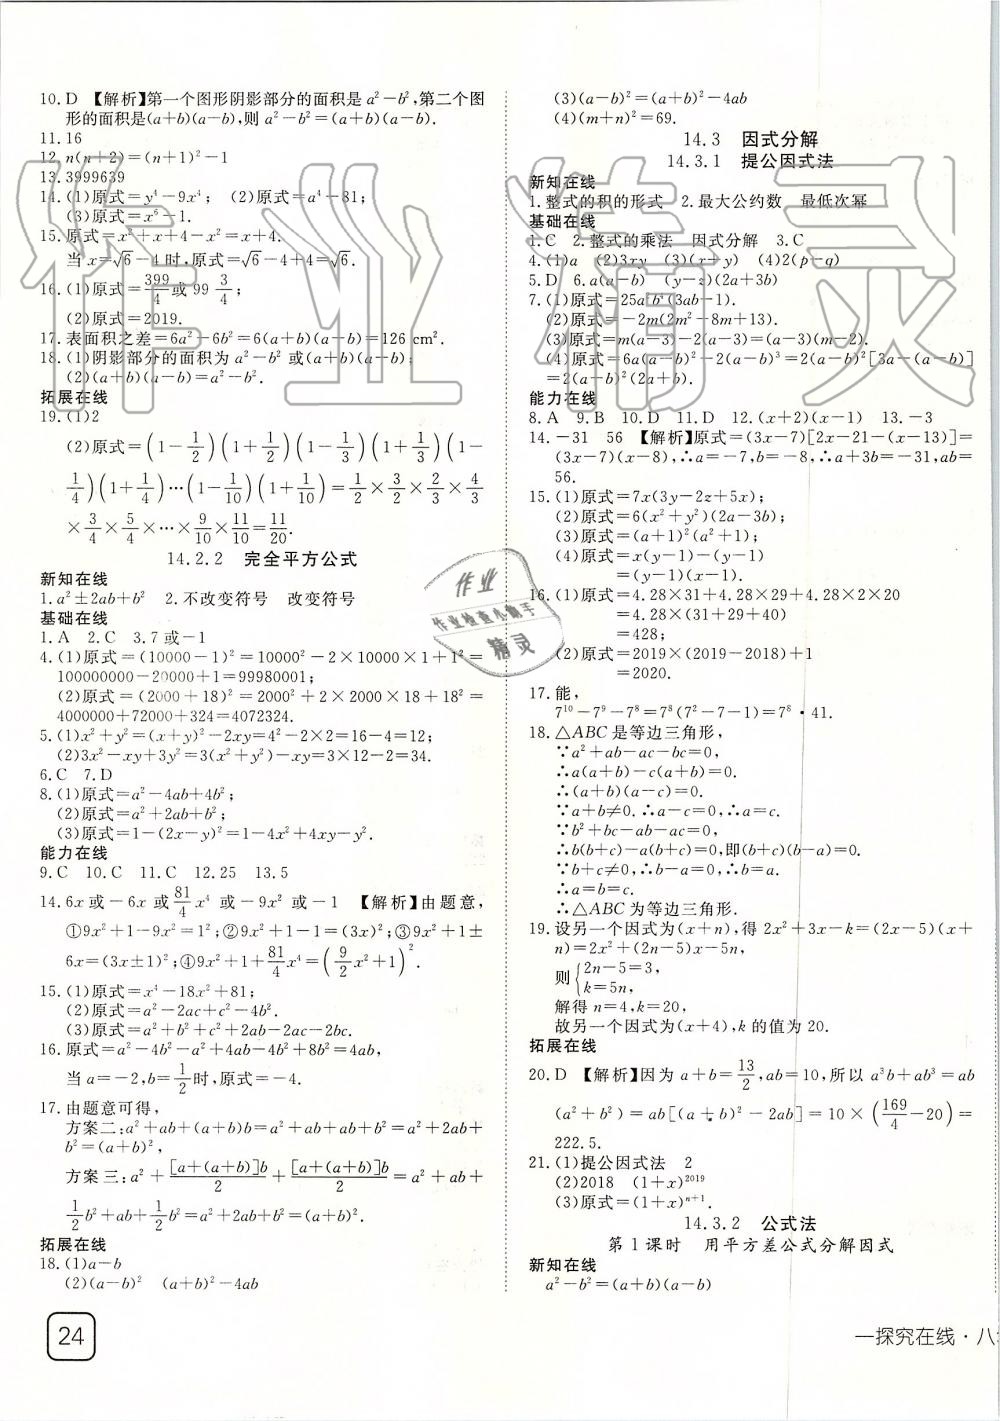 10. D 【解析】第一个图形阴影部分的面积是a²-b²,第二个图
形的面积是(a+b)(a-b),则a²-b²=(a+b)(a-b).
11. 16
12. n(n+2)=(n+1)²-1
13. 3999639
14. (1)原式=y⁴-9x⁴; (2)原式=a⁴-81;
(3)原式=x⁶-1.
15. 原式=x²+x+4-x²=x+4.
当x=√6-4时,原式=√6-4+4=√6.
16. (1)原式=399/4或99 3/4;
(2)原式=2019.
17. 表面积之差=6a²-6b²=6(a+b)(a-b)=126 cm².
18. (1)阴影部分的面积为a²-b²或(a+b)(a-b);
(2)(a+b)(a-b)=a²-b².
拓展在线
19. (1)2
(2)原式=(1-1/2)(1+1/2)(1-1/3)(1+1/3)(1-
1/4)(1+1/4)…(1-1/10)(1+1/10)=1/2×3/2×2/3×4/3
×3/4×5/4×…×9/10×11/10=11/20.
14.2.2 完全平方公式
新知在线
1. a²±2ab+b² 2. 不改变符号 改变符号
基础在线
1. A 2. C 3. 7或-1
4. (1)原式=(10000-1)²=10000²-2×10000×1+1²=
100000000-20000+1=99980001;
(2)原式=(2000+18)²=2000²+2×2000×18+18²=
4000000+72000+324=4072324.
5. (1)x²+y²=(x+y)²-2xy=4²-2×2=16-4=12;
(2)3x²-xy+3y²=3(x²+y²)-xy=3×12-2=34.
6. C 7. D
8. (1)原式=a²-4ab+4b²;
(2)原式=a²+2ab+b²;
(3)原式=1-(2x-y)²=1-4x²+4xy-y².
能力在线
9. C 10. C 11. C 12. 25 13. 5
14. 6x或-6x或81/4x⁴或-9x²或-1 【解析】由题意,
①9x²+1-9x²=1²;②9x²+1-1=(3x)²;③9x²+1±
6x=(3x±1)²;④9x²+1+81/4x⁴=(9/2x²+1)².
15. (1)原式=x⁴-18x²+81;
(2)原式=a²-2ac+c²-4b²;
(3)原式=a²+b²+c²+2ab-2ac-2bc.
16. 原式=a²-4b²-a²+4ab-4b²+8b²=4ab,
当a=-2,b=1/2时,原式=-4.
17. 由题意可得,
方案二:a²+ab+(a+b)b=a²+ab+ab+b²=a²+2ab+
b²=(a+b)²,
方案三:a²+[a+(a+b)]b/2+[a+(a+b)]b/2=a²+ab+
1/2b²+ab+1/2b²=a²+2ab+b²=(a+b)².
拓展在线
18. (1)a-b
(2)(a-b)² (a+b)²-4ab
(3)(a-b)²=(a+b)²-4ab
(4)(m+n)²=69.
14.3 因式分解
14.3.1 提公因式法
新知在线
1. 整式的积的形式 2. 最大公约数 最低次幂
基础在线
1. C 2. 整式的乘法 因式分解 3. C
4. (1)a (2)3xy (3)(x+y) (4)2(p-q)
5. D 6. a(a-b) (y-z)(2a+3b)
7. (1)原式=25a²b³(3ab-1).
(2)原式=-2m(2m²-8m+13).
(3)原式=m(a-3)-2(a-3)=(a-3)(m-2).
(4)原式=6a(a-b)²-2(a-b)³=2(a-b)²[3a-(a-b)]
=2(a-b)²(2a+b).
能力在线
8. A 9. B 10. D 11. D 12. (x+2)(x-1) 13. -3
14. -31 56 【解析】原式=(3x-7)[2x-21-(x-13)]=
(3x-7)(x-8),∴a=-7,b=-8,∴a+3b=-31,ab=
56.
15. (1)原式=7x(3y-2z+5x);
(2)原式=6(x²+y²)(2a-3b);
(3)原式=(a+1)²(a²+1);
(4)原式=x(y-1)-(y-1)
=(y-1)(x-1).
16. (1)原式=4.28×31+4.28×29+4.28×2×20
=4.28×(31+29+40)
=428;
(2)原式=2019×(2019-2018)+1
=2020.
17. 能,
7¹⁰-7⁹-7⁸=7⁸(7²-7-1)=7⁸·41.
18. △ABC是等边三角形,
∵a²+ab-ac-bc=0,
∴a(a+b)-c(a+b)=0.
∴(a+b)(a-c)=0.
∵a+b≠0.∴a-c=0,∴a=c.
∵b²+bc-ab-ac=0,
∴b(b+c)-a(b+c)=0,即(b+c)(b-a)=0.
∵b+c≠0,∴b-a=0,∴b=a.
∴a=b=c.
∴△ABC为等边三角形.
19. 设另一个因式为(x+n),得2x²+3x-k=(2x-5)(x+
n)=2x²+(2n-5)x-5n,
则{2n-5=3,
k=5n,
解得n=4,k=20,
故另一个因式为(x+4),k的值为20.
拓展在线
20. D 【解析】因为a+b=13/2,ab=10,所以a³b+ab³=ab
(a²+b²)=ab[(a+b)²-2ab]=10×(169/4-20)=
222.5.
21. (1)提公因式法 2
(2)2018 (1+x)²⁰¹⁹
(3)原式=(1+x)ⁿ⁺¹.
14.3.2 公式法
第1课时 用平方差公式分解因式
新知在线
a²-b²=(a+b)(a-b)
24
一探究在线·八
作业精灵
作业
作业检查小助手
精灵